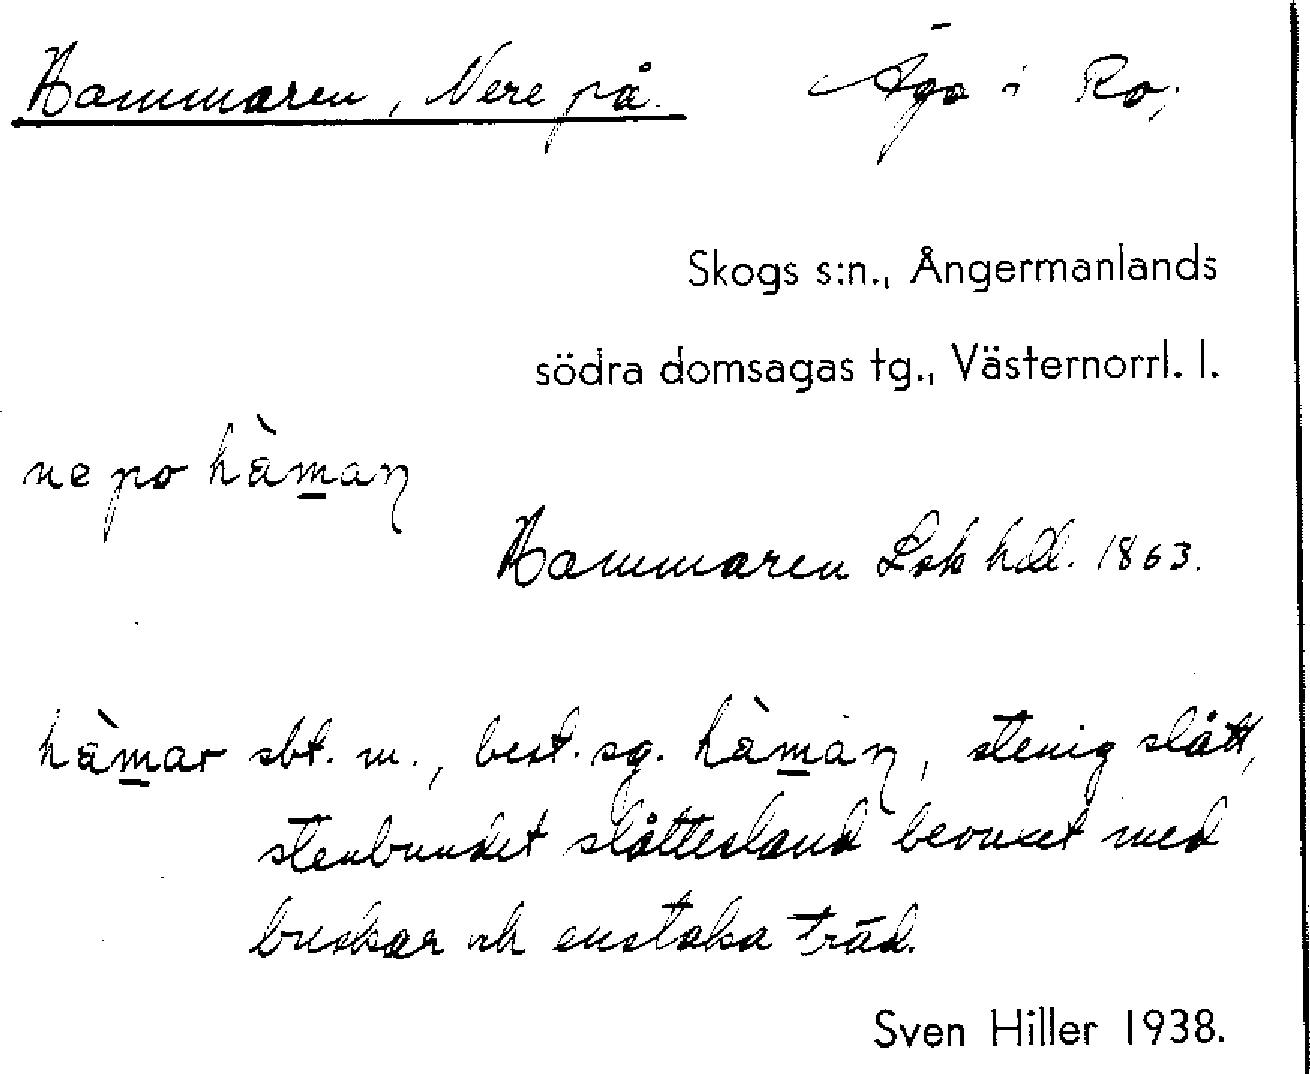 Hammaren, Nere på. Äga i Ro,
Skogs s:n., Ångermanlands
södra domsagas tg., Västernorrl. l.
ne po hàm̲aŋ
Hammaren Lsk hdl. 1863.
hàm̲ar sbt. m., best. sg. hàm̲aŋ, stenig slått,
stenbundet slåttesland bevuxet med
buskar och enstaka träd.
Sven Hiller 1938.